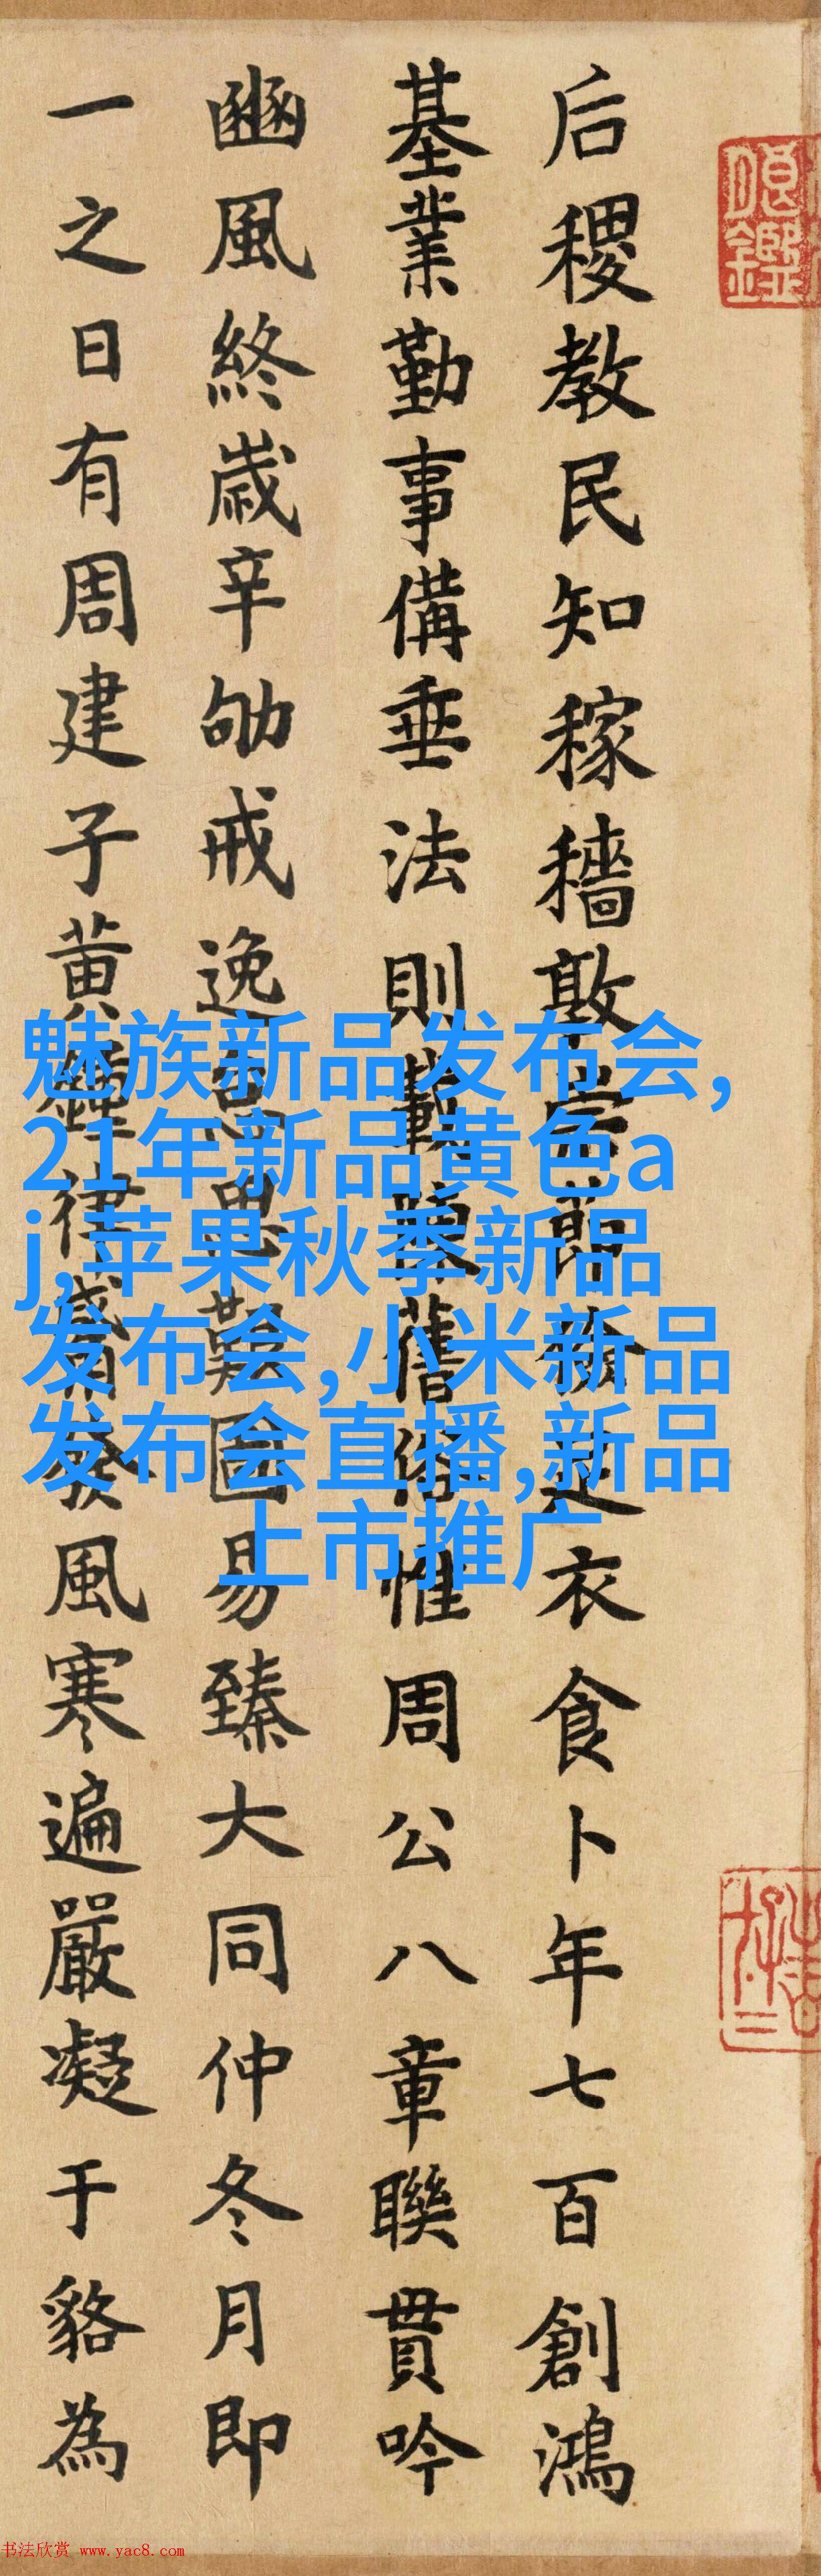 后稷教民知稼穡敦崇節足衣食卜年七百創鴻
基業勤事備垂法則載舊俗惟周公八章聯貫吟
豳風終歲辛劬戒逸思艱圖易臻大同仲冬月即
一之日有周建子黃鍾律觱發風寒遍嚴凝于貉為
魅族新品发布会,
21年新品黄色a
j,苹果秋季新品
发布会,小米新品
发布会直播,新品
上市推广
书法欣赏 www.yac8.com